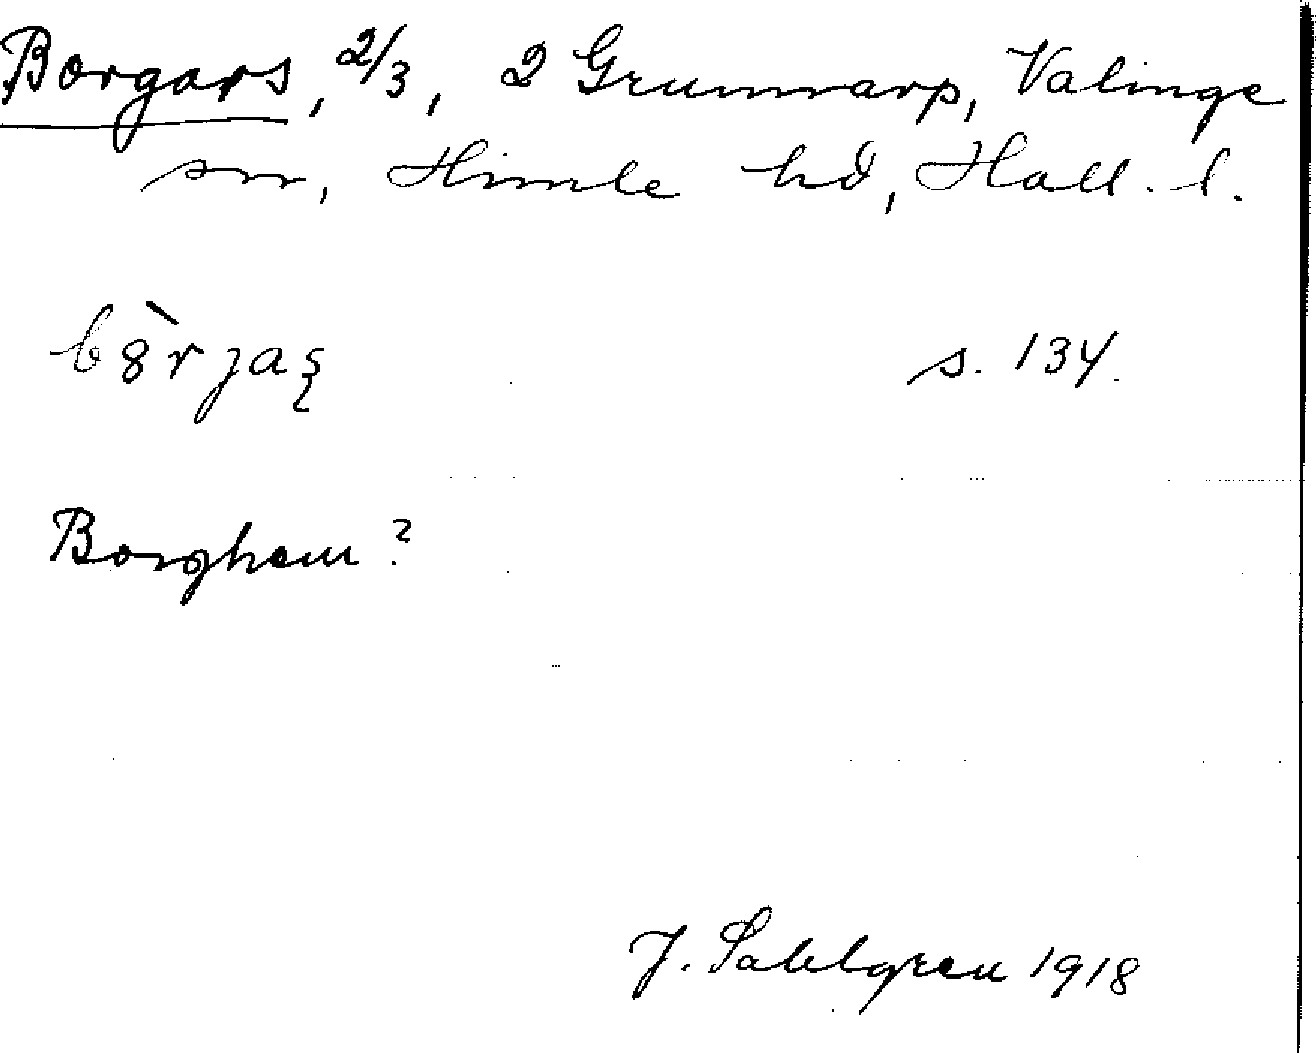 Borgars, 2/3, 2 Grumnarp, Valinge
sn, Himle hd, Hall. l.
b8̀rjaʂ s. 134.
Borghem?
J. Sahlgren 1918